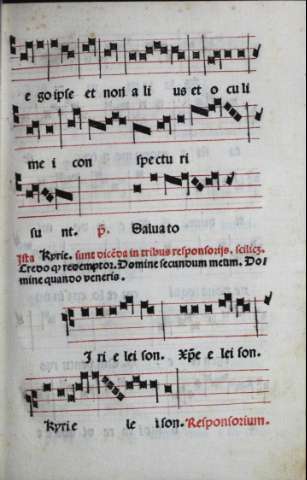 e go ipse et non a li us et o cu li
me i con spectu ri
su nt. p. Saluato
Ista Kyrie. sunt dicēda in tribus responsorijs. scilicz.
Credo qƺ redemptor. Domine secundum meum. Do⸗
mine quando veneris.
J ri e lei son. Xp̄e e lei son.
Kyri e le ison. Responsorium.